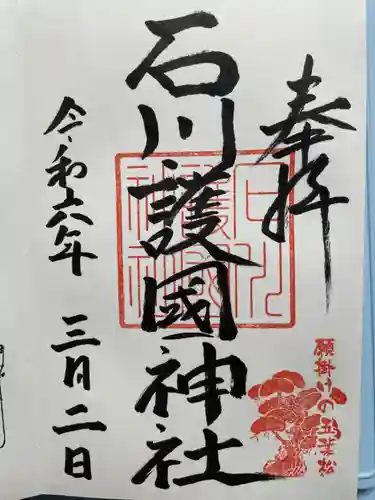 奉拝
石川護國神社
令和六年
三月二日
願掛けの五葉松